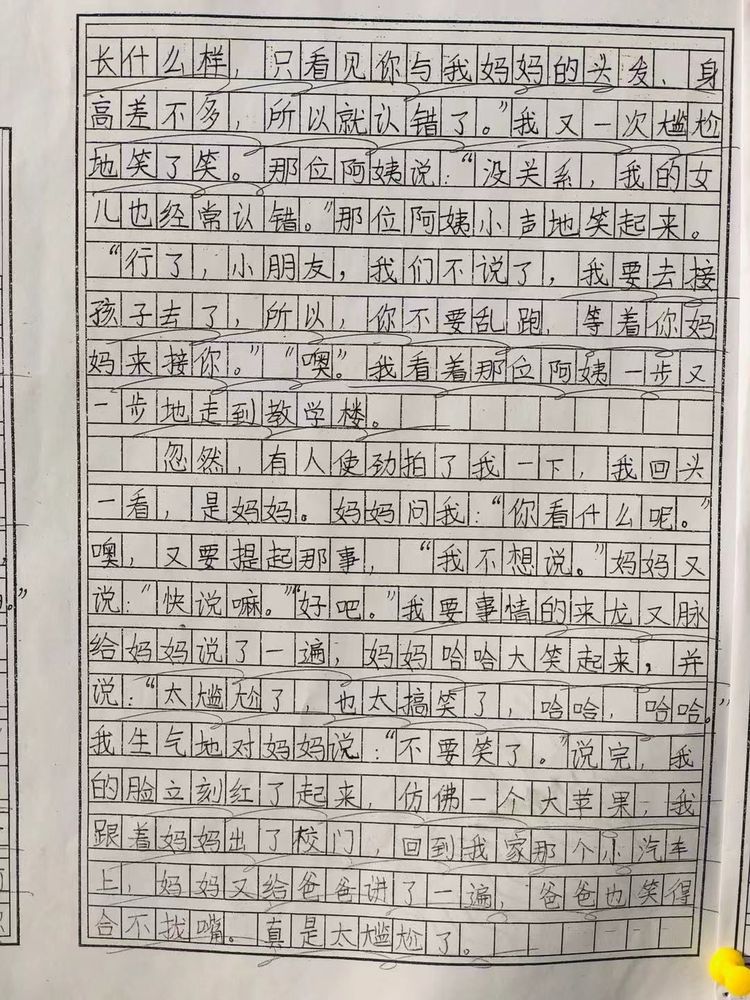 长什么样，只看见你与我妈妈的头发、身
高差不多，所以就认错了。”我又一次尴尬
地笑了笑。那位阿姨说：“没关系，我的女
儿也经常认错。”那位阿姨小声地笑起来。
“行了，小朋友，我们不说了，我要去接
孩子去了，所以，你不要乱跑，等着你妈
妈来接你。”“噢。”我看着那位阿姨一步又
一步地走到教学楼。
忽然，有人使劲拍了我一下，我回头
一看，是妈妈。妈妈问我：“你看什么呢。”
噢，又要提起那事，“我不想说。”妈妈又
说：“快说嘛。”“好吧。”我要事情的来龙又脉
给妈妈说了一遍，妈妈哈哈大笑起来，并
说：“太尴尬了，也太搞笑了，哈哈，哈哈。”
我生气地对妈妈说：“不要笑了。”说完，我
的脸立刻红了起来，仿佛一个大苹果，我
跟着妈妈出了校门，回到我家那个小汽车
上，妈妈又给爸爸讲了一遍，爸爸也笑得
合不找嘴。真是太尴尬了。